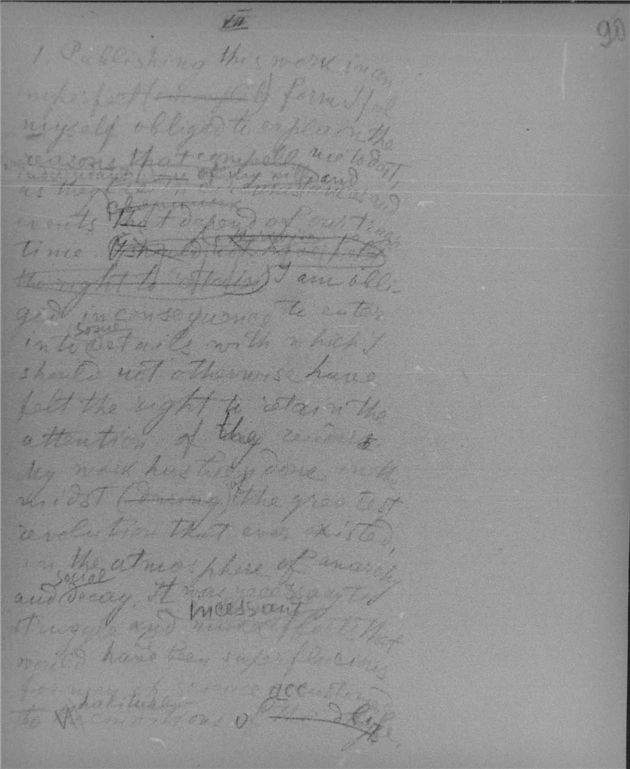 VII
90
1. Publishing this work in an
imperfect form I feel
myself obliged to explain the
reasons that compell me to do it,
of my will and
as they
phenomena and
events that depend of our
time. I should not have felt
the right to retain I am obli-
ged in consequence to enter
into some details with which I
should not otherwise have
felt the right to retain the
attention of the readers
My work has been done in the
midst (among) the greatest
revolution that ever existed,
in the atmosphere of anarchy
and social decay. It was necessary to
incessant
struggle and efforts that
would have been superfluous
for men of science accustomed
to habitual conditions of life.